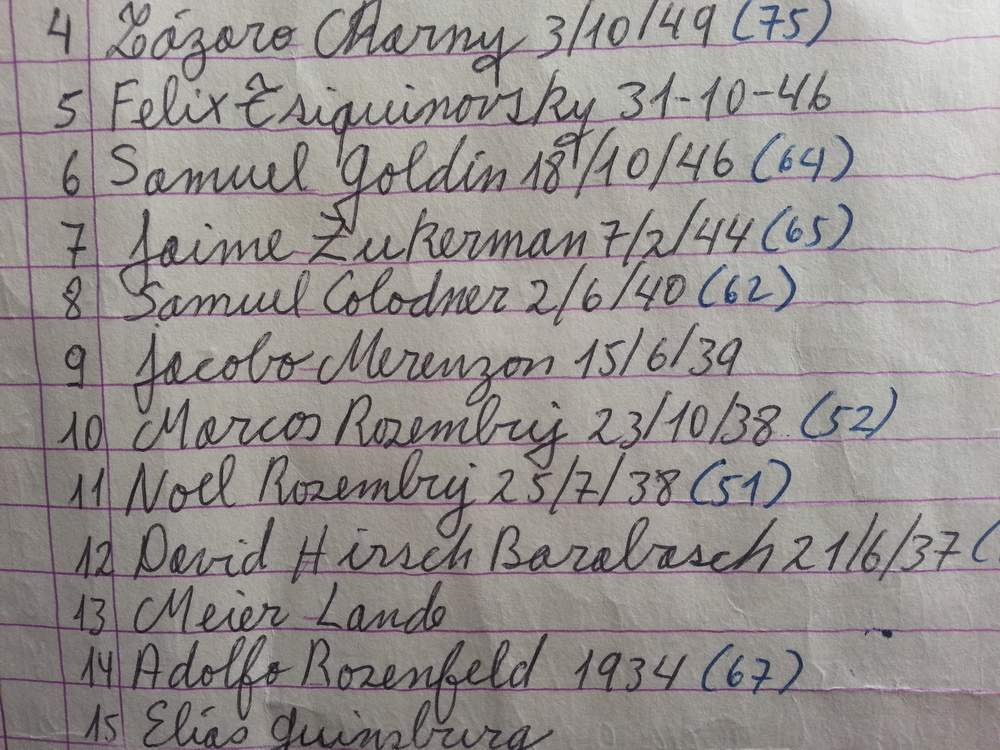 4 Lázaro Charny 3/10/49 (75)
5 Felix Tsiquinovsky 31-10-46
6 Samuel Goldin 18/10/46 (64)
7 Jaime Zukerman 7/2/44 (65)
8 Samuel Colodner 2/6/40 (62)
9 Jacobo Merenzon 15/6/39
10 Marcos Rozembrij 23/10/38 (52)
11 Noel Rozembrij 25/7/38 (51)
12 David Hirsch Barabasch 21/6/37 (
13 Meier Lande
14 Adolfo Rozenfeld 1934 (67)
15 Elías Guinsburg